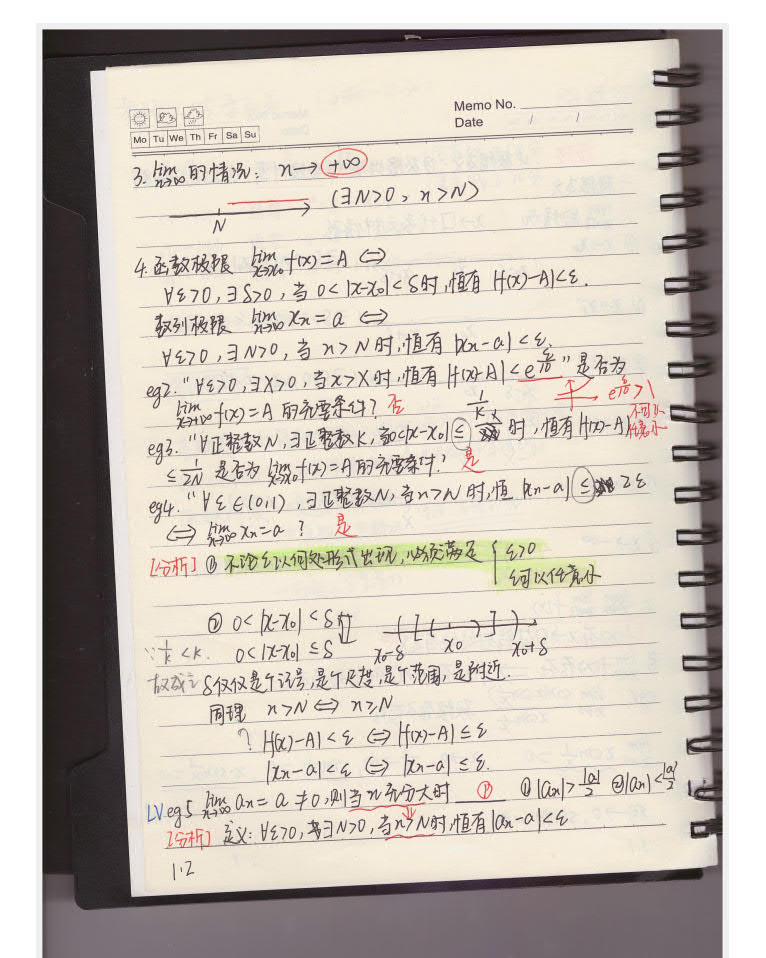 Memo No.
Date / /
Mo Tu We Th Fr Sa Su
3. lim n→∞ 的情况: n→+∞
(∃N>0, n>N)
N
4. 函数极限 lim x→x₀ f(x)=A ⇔
∀ε>0, ∃δ>0, 当 0<|x-x₀|<δ时,恒有 |f(x)-A|<ε.
数列极限 lim n→∞ xn=a ⇔
∀ε>0, ∃N>0, 当 n>N 时,恒有 |xn-a|<ε.
eg2. "∀ε>0, ∃X>0, 当x>X时,恒有 |f(x)-A|<e^(ε/10)" 是否为
e^(ε/10)>1
lim x→+∞ f(x)=A 的充要条件? 否
不可以任意小
eg3. "∀正整数N, ∃正整数K, 当0<|x-x₀|≤1/K 时,恒有 |f(x)-A|
≤1/2N 是否为 lim x→x₀ f(x)=A的充要条件? 是
eg4. "∀ε∈(0,1), ∃正整数N, 当n>N时,恒 |xn-a|≤2ε
⇔ lim n→∞ xn=a ? 是
[分析] ① 不论ε以何处形式出现,必须满足 { ε>0
ε可以任意小
② 0<|x-x₀|<δ
x₀-δ x₀ x₀+δ
∵1/k<k. 0<|x-x₀|≤δ
故成立 δ仅仅是个记号,是个尺度,是个范围,是附近.
同理 n>N ⇔ n≥N
? |f(x)-A|<ε ⇔ |f(x)-A|≤ε
|xn-a|<ε ⇔ |xn-a|≤ε.
LV eg5 lim n→∞ an=a≠0,则当n充分大时 ____ ① ①|an|>|a|/2 ②|an|<|a|/2
[分析] 定义: ∀ε>0, ∃N>0, 当n>N时,恒有|an-a|<ε
1.2